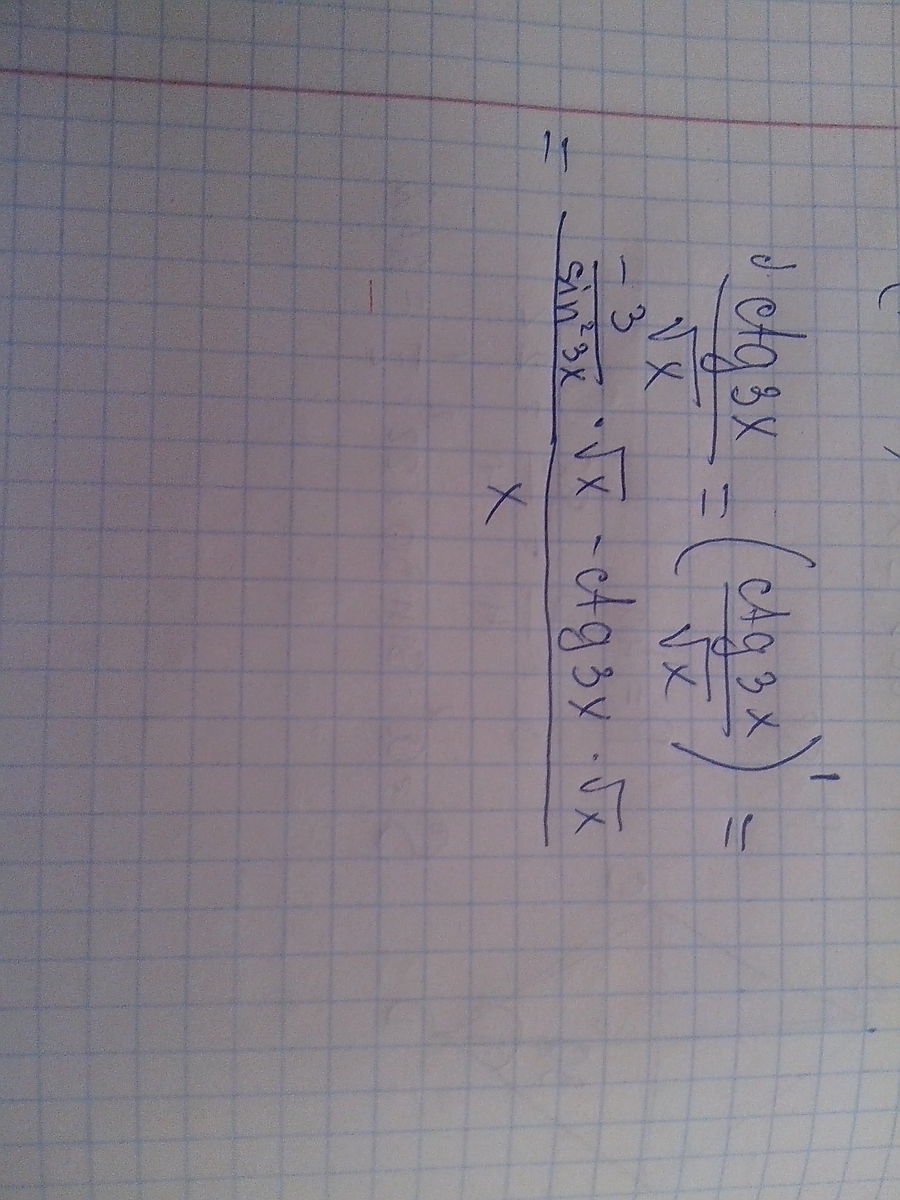 ctg 3x / √x = (ctg 3x / √x)' =
= (-3 / sin²3x · √x - ctg 3x · √x) / x